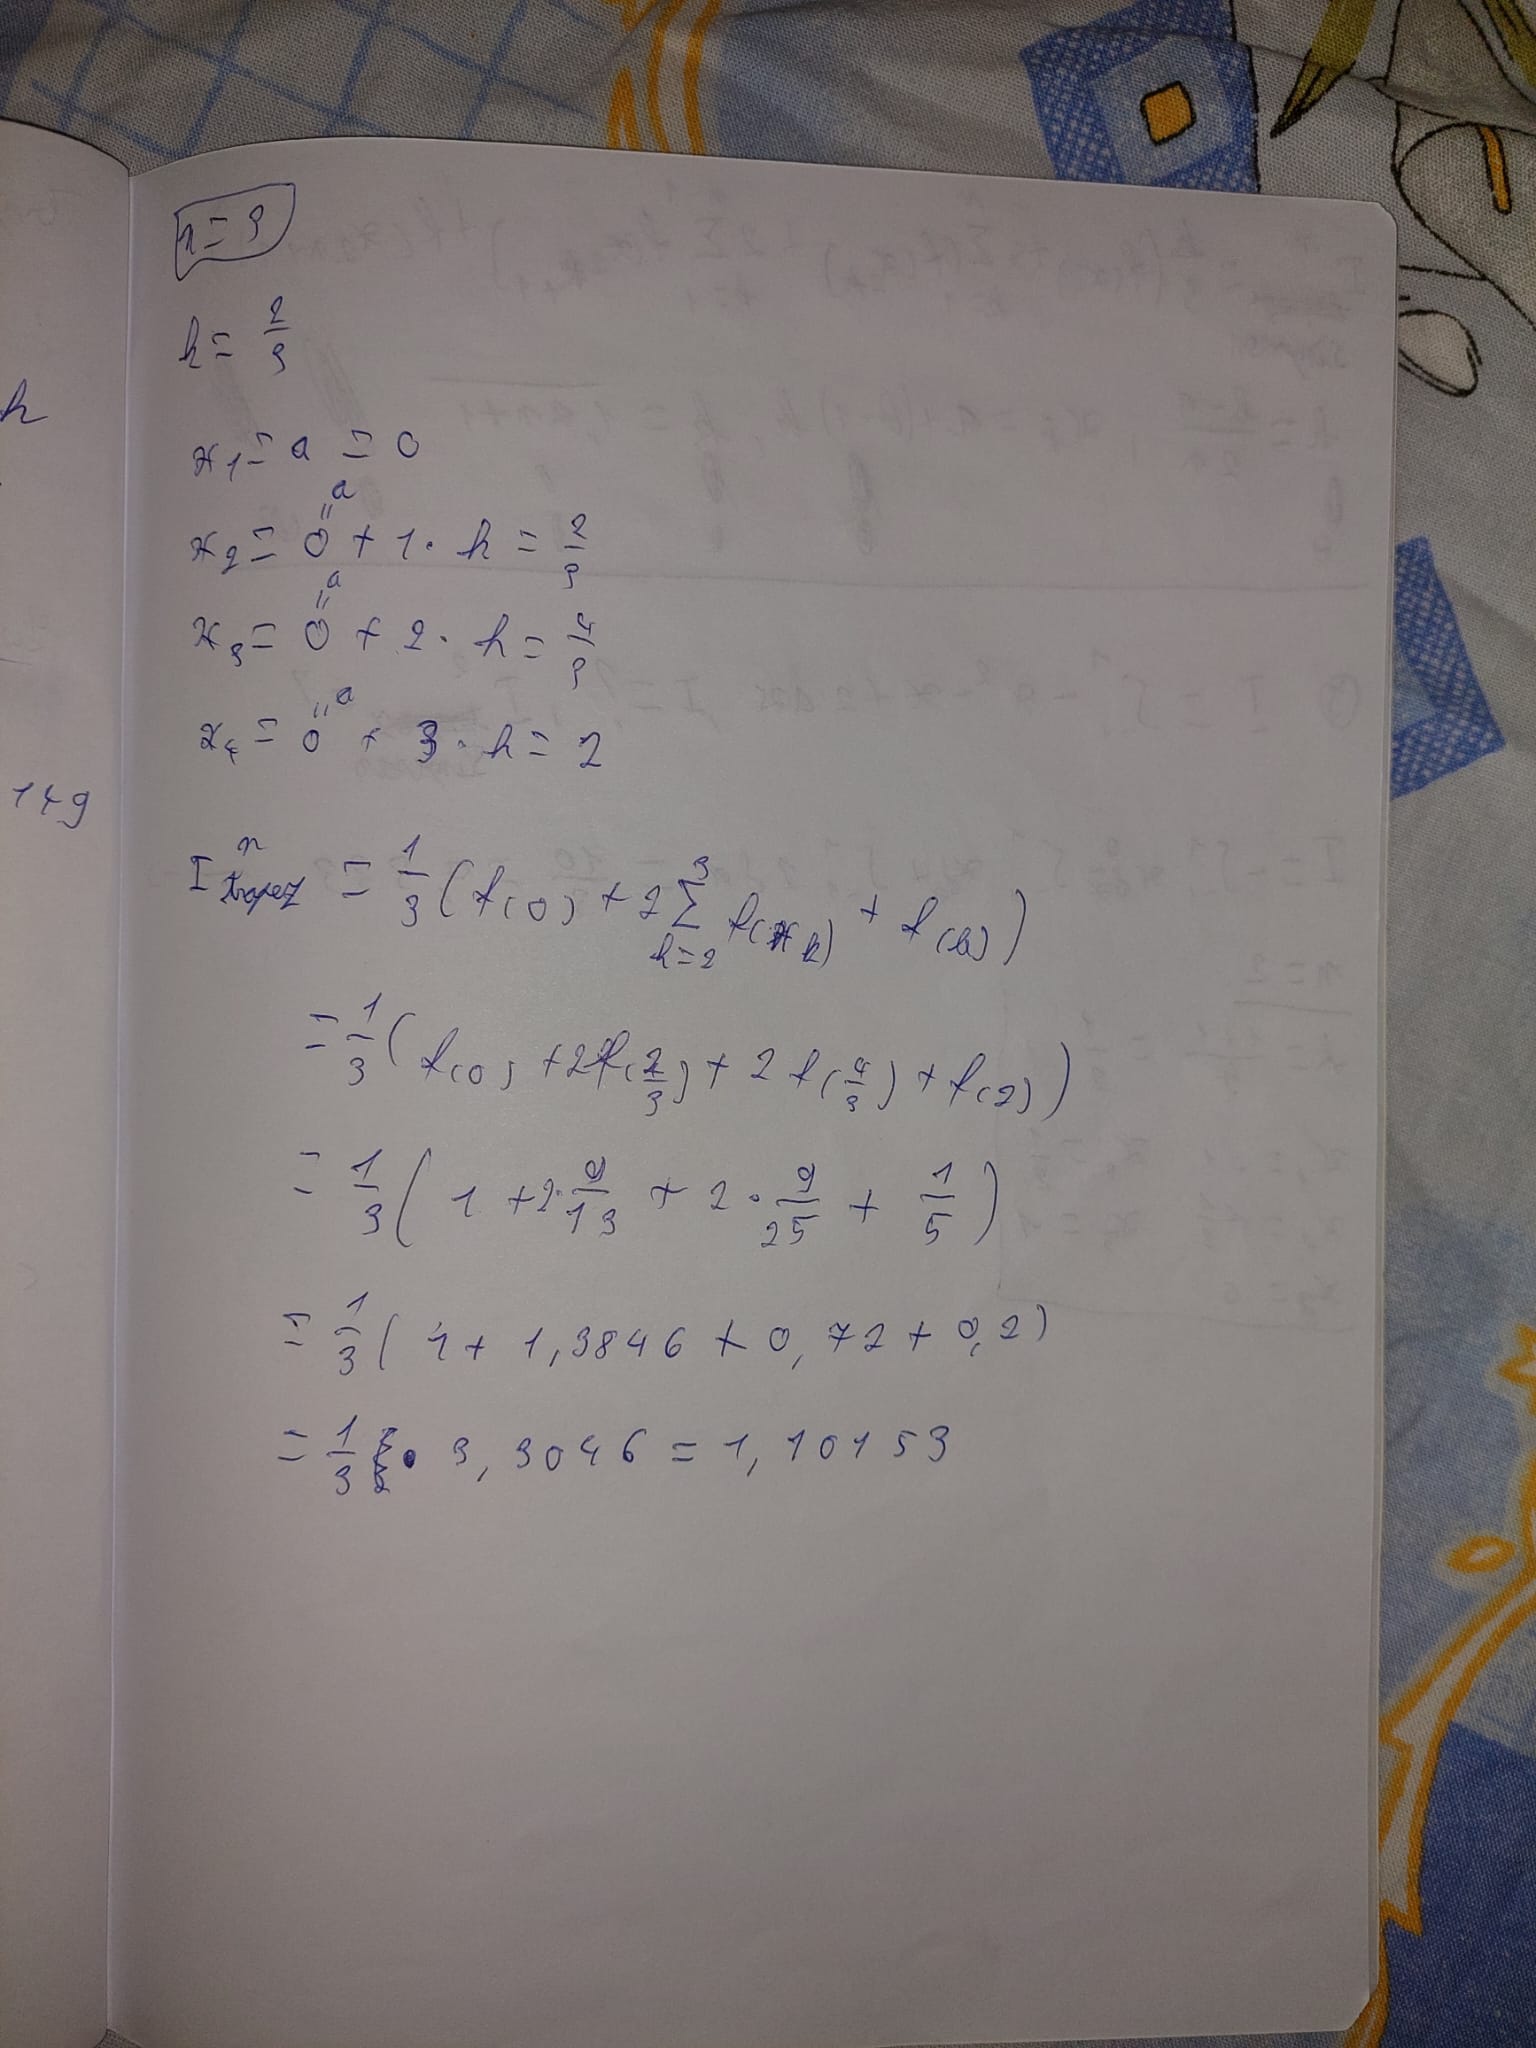 n = 3
h = 2/3
x₁ = a = 0
x₂ = 0 (= a) + 1 · h = 2/3
x₃ = 0 (= a) + 2 · h = 4/3
x₄ = 0 (= a) + 3 · h = 2
h
149
I^n trapez = 1/3 ( f(0) + 2 Σ_{k=2}^{3} f(x_k) + f(b) )
= 1/3 ( f(0) + 2f(2/3) + 2f(4/3) + f(2) )
= 1/3 ( 1 + 2 · 9/13 + 2 · 9/25 + 1/5 )
= 1/3 ( 1 + 1,3846 + 0,72 + 0,2 )
= 1/3 · 3,3046 = 1,10153